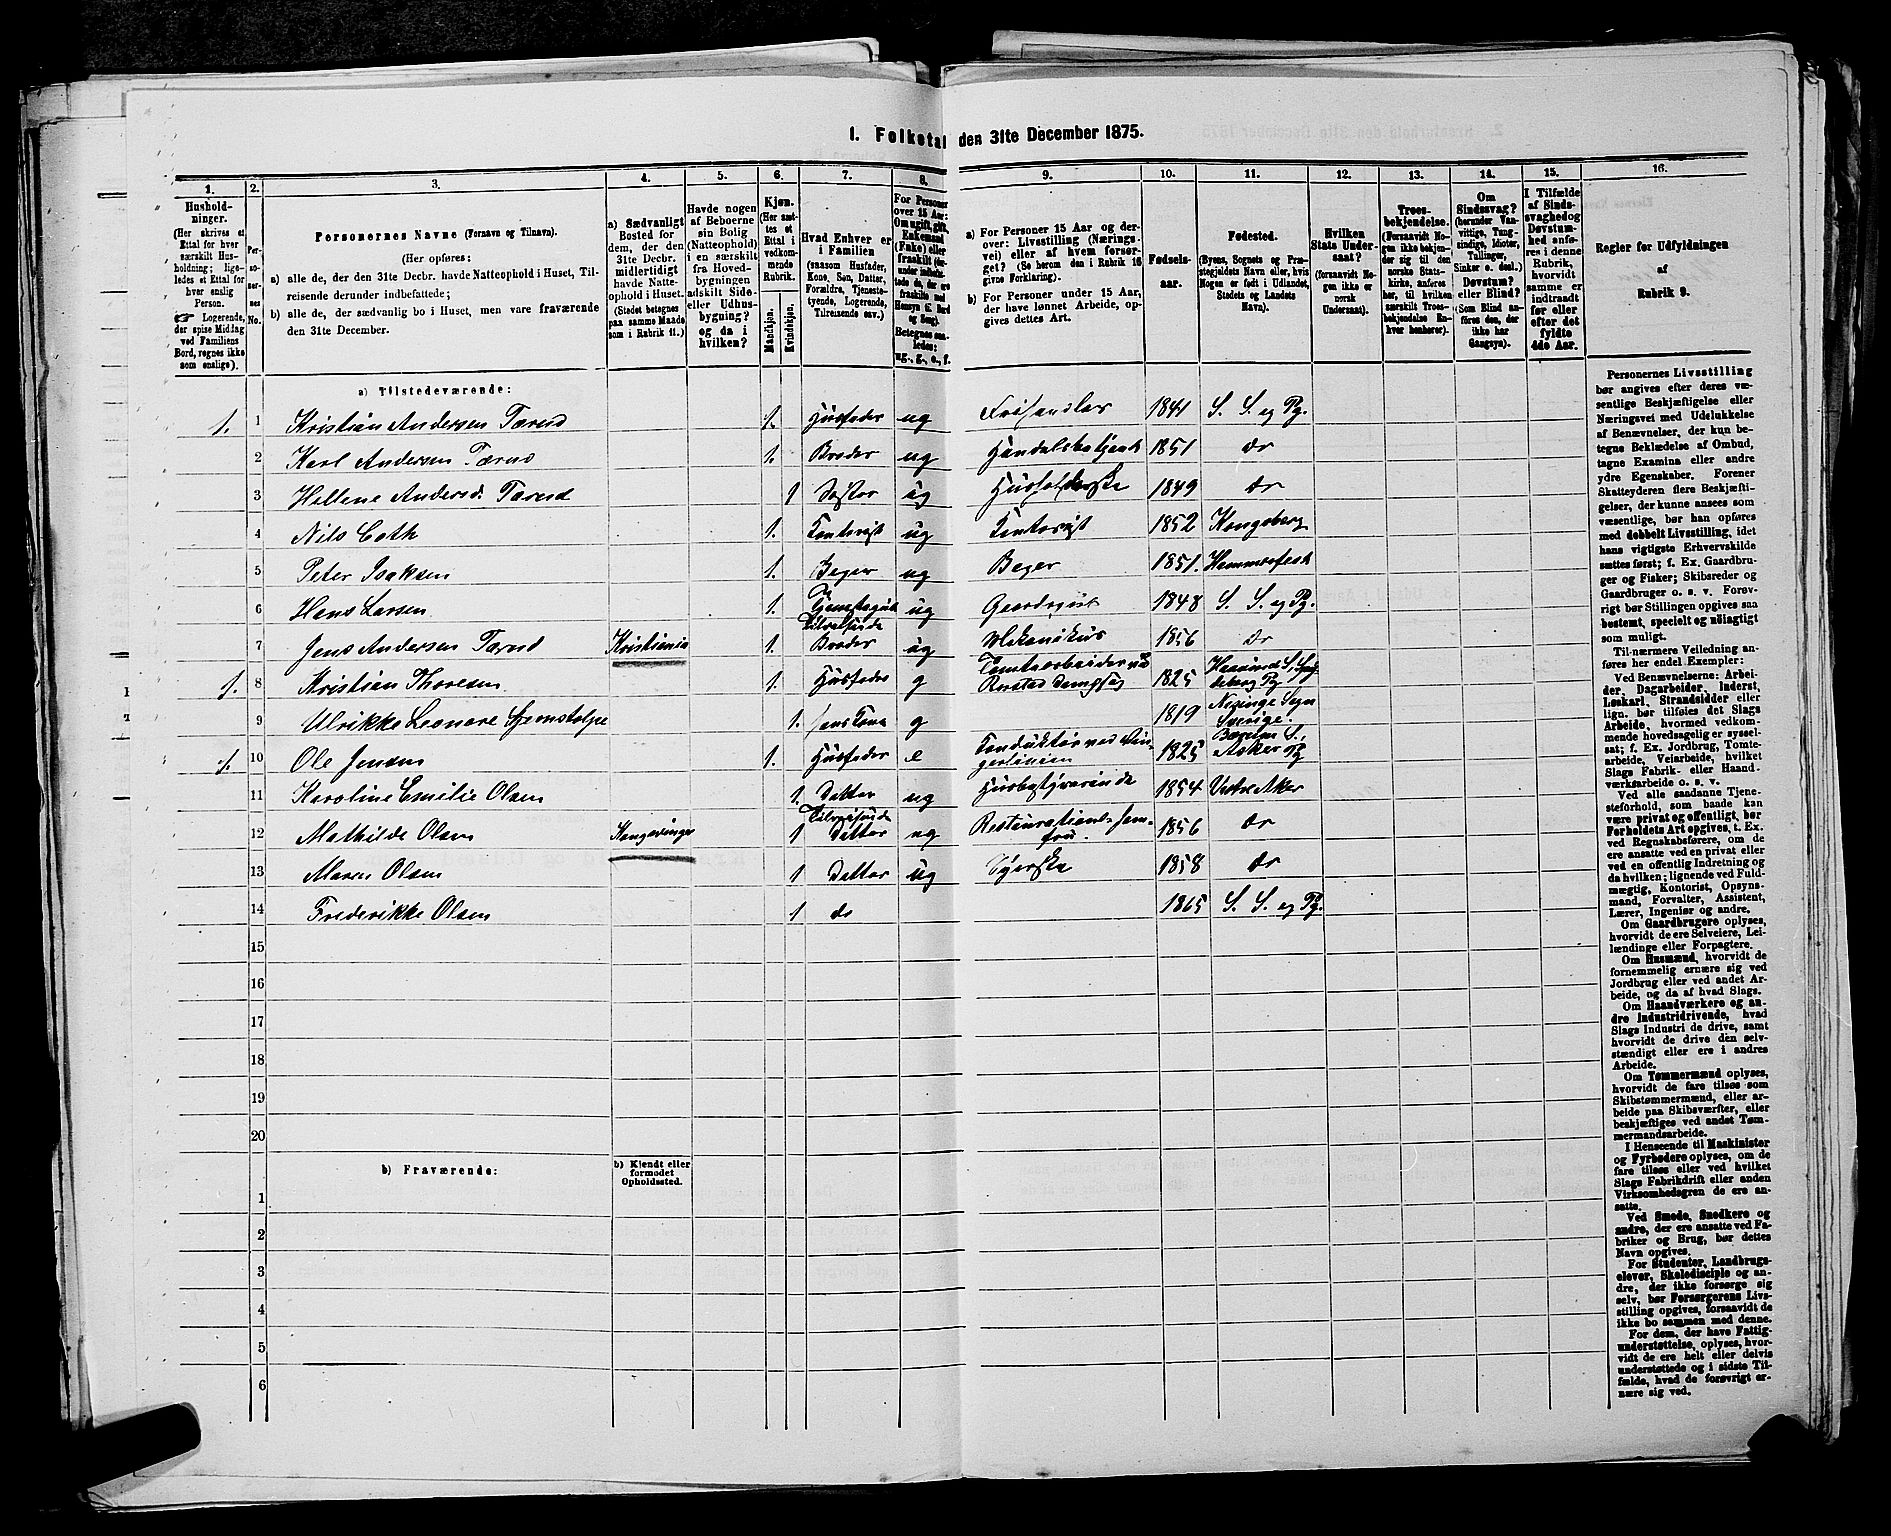 1. Folketal den 31te December 1875.
1. 2. 3. 4. 5. 6. 7. 8. 9. 10. 11. 12. 13. 14. 15. 16.
Hushold-
ninger.
(Her skrives et
Ettal for hver
særskilt Hus-
holdning; lige-
ledes et Ettal for
hver enslig
Person.
☞ Logerende,
der spise Middag
ved Familiens
Bord, regnes ikke
som enslige).
Per-
so-
ner-
nes
No.
Personernes Navne (Fornavn og Tilnavn).
(Her opføres:
a) alle de, der den 31te Decbr. havde Natteophold i Huset, Til-
reisende derunder indbefattede;
b) alle de, der sædvanlig bo i Huset, men vare fraværende
den 31te December.
a) Sædvanligt
Bosted for
dem, der den
31te Decbr.
midlertidigt
havde Natte-
ophold i Huset.
(Stedet betegnes
paa samme Maade
som i Rubrik 11.)
Havde nogen
af Beboerne
sin Bolig
(Natteophold)
i en særskilt
fra Hoved-
bygningen
adskilt Side-
eller Udhus-
bygning?
og da i
hvilken?
Kjøn.
(Her sæt-
tes et
Ettal i
vedkom-
mende
Rubrik.
Mandkjøn.
Kvindekjøn.
Hvad Enhver er
i Familien
(saasom Husfader,
Kone, Søn, Datter,
Forældre, Tjeneste-
tyende, Logerende,
Tilreisende osv.)
For Personer
over 15 Aar:
Om ugift, gift,
Enkemand
(Enke) eller
fraskilt
Betegnes saa-
ledes:
ug., g., e., f.
a) For Personer 15 Aar og der-
over: Livsstilling (Nærings-
vei) eller af hvem forsør-
get? (Se herom den i Rubrik 16
givne Forklaring).
b) For Personer under 15 Aar,
der have lønnet Arbeide, op-
gives dettes Art.
Fødsels-
aar.
Fødested.
(Byens, Sognets og Præ-
stegjeldets Navn eller, hvis
Nogen er født i Udlandet,
Stedets og Landets
Navn).
Hvilken
Stats Under-
saat?
(forsaavidt No-
gen ikke er
norsk
Undersaat).
Troes-
bekjendelse.
(Forsaavidt No-
gen ikke bekjen-
der sig til den
norske Stats-
kirke, anføres
her, til hvilken
særskilt Troes-
bekjendelse En-
hver henhører).
Om
Sindssvag?
(herunder Van-
vittige, Tung-
sindige, Idioter,
Tullinger,
Sinker o. desl.)
Døvstum?
eller Blind?
(Som Blind an-
føres den, der
ikke har
Gangsyn).
I Tilfælde
af Sinds-
svaghed og
Døvstum-
hed anfø-
res i denne
Rubrik,
hvorvidt
samme er
indtraadt
før eller
efter det
fyldte
4de Aar.
Regler for Udfyldningen
af
Rubrik 9.
a) Tilstedeværende:
1. 1 Kristian Andersen Tærud 1. Husfader ug 1841 S. S. og Pg.
2 Karl Andersen Tærud 1. Broder ug Handelsbetjent 1851 do
3 Hellene Andersd. Tærud 1 Søster ug Husholderske 1849 do
4 Nils Coth 1. Kontorist ug Kontorist 1852 Kongsberg
5 Peter Isaksen 1. Bager ug Bager 1851. Hammerfest
6 Hans Larsen 1. Tjenestegut ug Gaardsgut 1848 S. S. og Pg.
7 Jens Andersen Tærud Kristiania 1. Tilreisende Broder ug Mekanikus 1856 do
1. 8 Kristian Thoresen 1. Husfader g Tomtearbeider ved Dampsag 1825
9 Ulrikke Leonore 1. hans Kone g 1819 Sogn Sverige.
1. 10 Ole Jensen 1. Husfader e Konduktør ved 1825 Bærum S., Asker Pg
11 Karoline Emilie Olsen 1. Datter ug Husbestyrerinde 1854 Vestre Aker
12 Mathilde Olsen Kongsvinger 1 Tilreisende Datter ug Restaurations- 1856 do
13 Maren Olsen 1 Datter ug Syerske 1858 do
14 Frederikke Olsen 1 do 1865 S. S. og Pg.
15
16
17
18
19
20
b) Fraværende:
b) Kjendt eller
formodet
Opholdssted.
1
2
3
4
5
6
Personernes Livsstilling
bør angives efter deres væ-
sentlige Beskjæftigelse eller
Næringsvei med Udelukkelse
af Benævnelser, der kun be-
tegne Beklædelse af Ombud,
tagne Examina eller andre
ydre Egenskaber. Forener
Skatteyderen flere Beskjæfti-
gelser, der kunne ansees som
væsentlige, bør han opføres
med dobbelt Livsstilling, idet
hans vigtigste Erhvervskilde
sættes først; f. Ex. Gaardbru-
ger og Fisker; Skibsreder og
Gaardbruger o. s. v. Forøv-
rigt bør Stillingen opgives saa
bestemt, specielt og nøiagtigt
som muligt.
Til nærmere Veiledning an-
føres her endel Exempler:
Ved Benævnelserne: Arbei-
der, Dagarbeider, Inderst,
Løskarl, Strandsidder eller
lign. bør tilføies det Slags
Arbeide, hvormed vedkom-
mende hovedsagelig er syssel-
sat; f. Ex. Jordbrug, Tomte-
arbeide, Veiarbeide, hvilket
Slags Fabrik- eller Haand-
værksarbeide o. s. v.
Ved alle saadanne Tjene-
steforhold, som baade kan
være privat og offentligt, bør
Forholdets Art opgives, t. Ex.
ved Regnskabsførere, om de
ere ansatte ved en privat eller
ved en offentlig Indretning og
da hvilken; lignende ved Fuld-
mægtig, Kontorist, Opsyns-
mand, Forvalter, Assistent,
Lærer, Ingeniør og andre.
Om Gaardbrugere oplyses,
hvorvidt de ere Selveiere, Lei-
lændinge eller Forpagtere.
Om Husmænd, hvorvidt de
fornemmelig ernære sig ved
Jordbrug eller ved andet Ar-
beide, og da af hvad Slags.
Om Haandværkere og an-
dre Industridrivende, hvad
Slags Industri de drive, samt
hvorvidt de drive den selv-
stændigt eller ere i andres
Arbeide.
Om Tømmermænd oplyses,
hvorvidt de fare tilsøs som
Skibstømmermænd, eller ar-
beide paa Skibsværfter, eller
beskjæftiges ved andet Tøm-
mermandsarbeide.
I Henseende til Maskinister
og Fyrbødere oplyses, om de
fare tilsøs eller ved hvilket
Slags Fabrikdrift eller anden
Virksomhedsgren de ere an-
satte.
Ved Smede, Snedkere og
andre, der ere ansatte ved Fa-
briker og Brug, bør dettes
Navn opgives.
For Studenter, Landbrugs-
elever, Skoledisciple og an-
dre, der ikke forsørge sig
selv, bør Forsørgerens Livs-
stilling opgives, forsaavidt de
ikke bo sammen med denne.
For dem, der have Fattig-
understøttelse, oplyses, hvor-
vidt de ere helt eller delvis
understøttede og i sidste Til-
fælde, hvad de forøvrigt er-
nære sig ved.